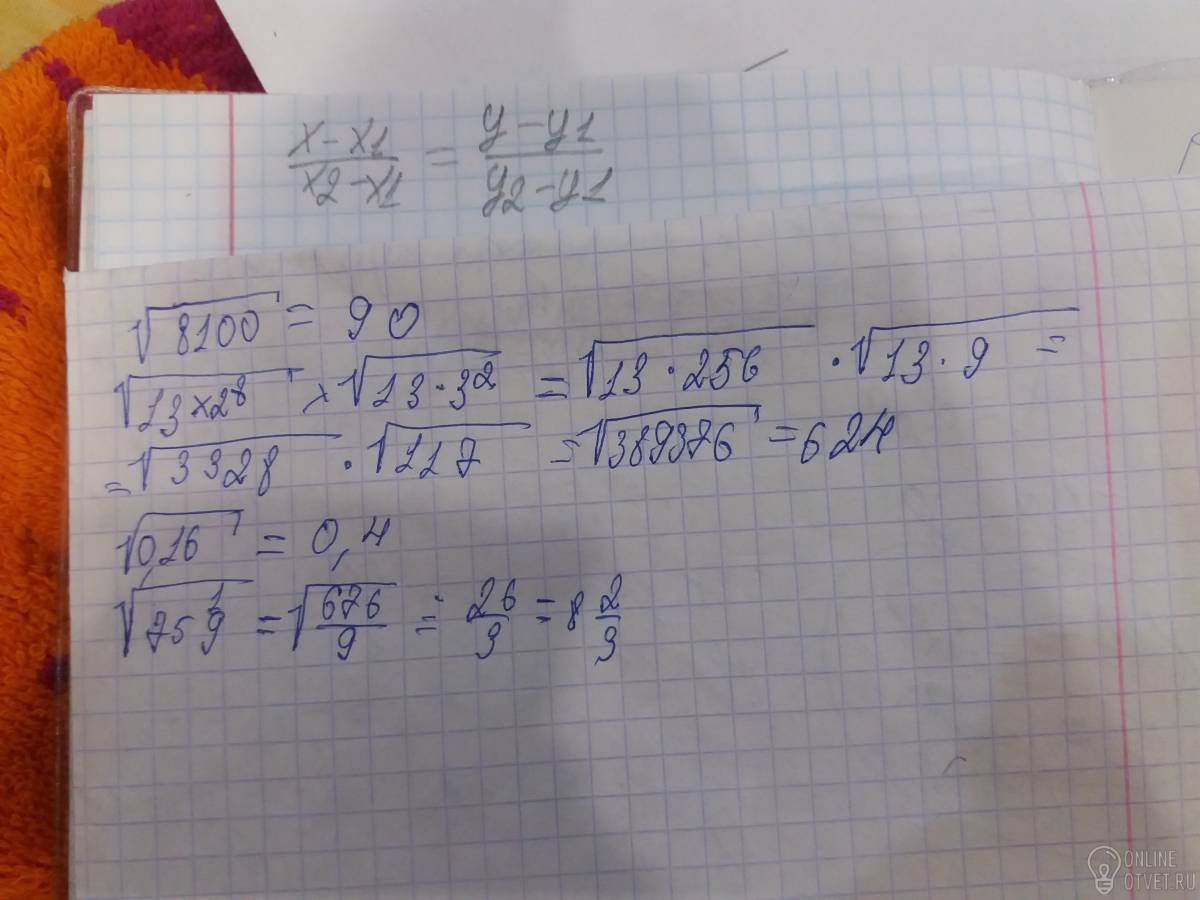 x-x1/x2-x1 = y-y1/y2-y1
√8100 = 90
√13×2⁸ × √13·3² = √13·256 · √13·9 =
= √3328 · √117 = √389376 = 624
√0,16 = 0,4
√75 1/9 = √676/9 = 26/3 = 8 2/3
ONLINE
OTVET.RU